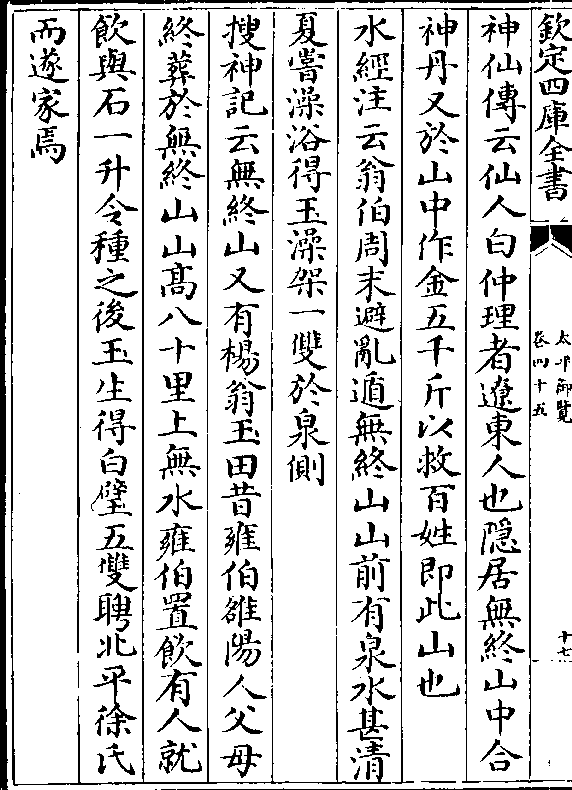 欽定四庫全書
太平御覽
卷四十五
十七
神仙傳云仙人白仲理者遼東人也隱居無終山中合
神丹又於山中作金五千斤以救百姓即此山也
水經注云翁伯周末避亂遁無終山山前有泉水甚清
夏嘗澡浴得玉澡架一雙於泉側
搜神記云無終山又有楊翁玉田昔雍伯雒陽人父母
終葬於無終山山髙八十里上無水雍伯置飲有人就
飲與石一升令種之後玉生得白璧五雙聘北平徐氏
而遂家焉